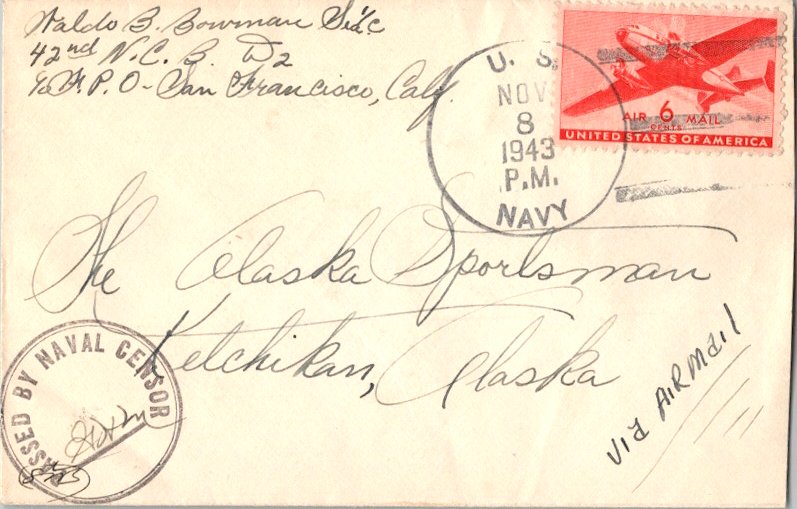 Waldo B. Bowman Sea 1/c
42nd N.C.B. D2
c/o F.P.O - San Francisco, Calif.
U. S.
NOV
8
1943
P.M.
NAVY
AIR 6 MAIL
CENTS
UNITED STATES OF AMERICA
The Alaska Sportsman
Ketchikan, Alaska
VIA AIRMAIL
SSED BY NAVAL CENSOR